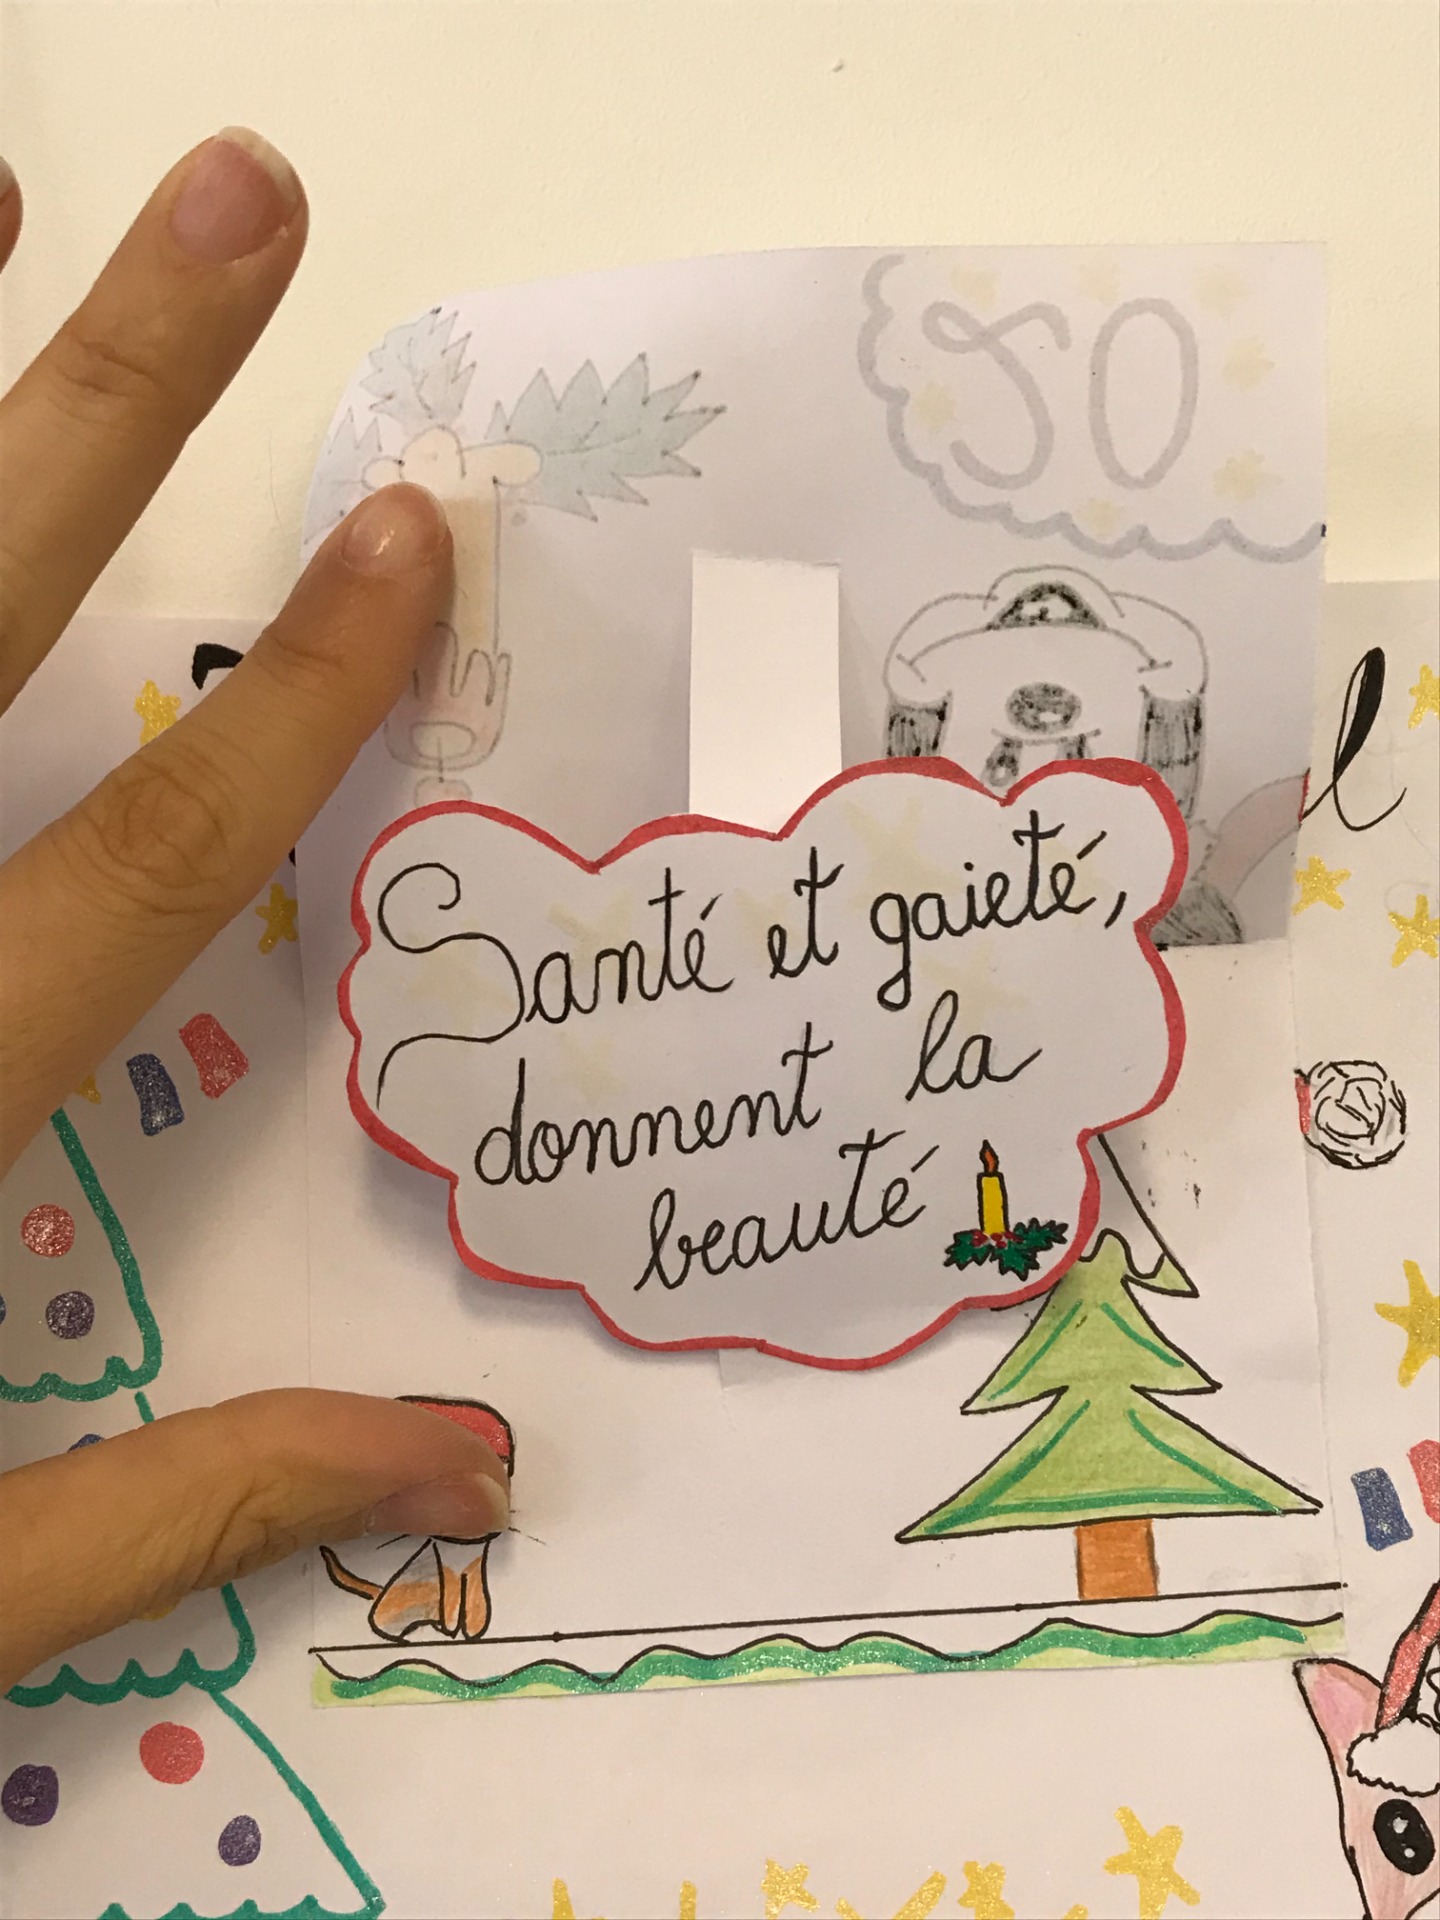 Santé et gaieté,
donnent la
beauté